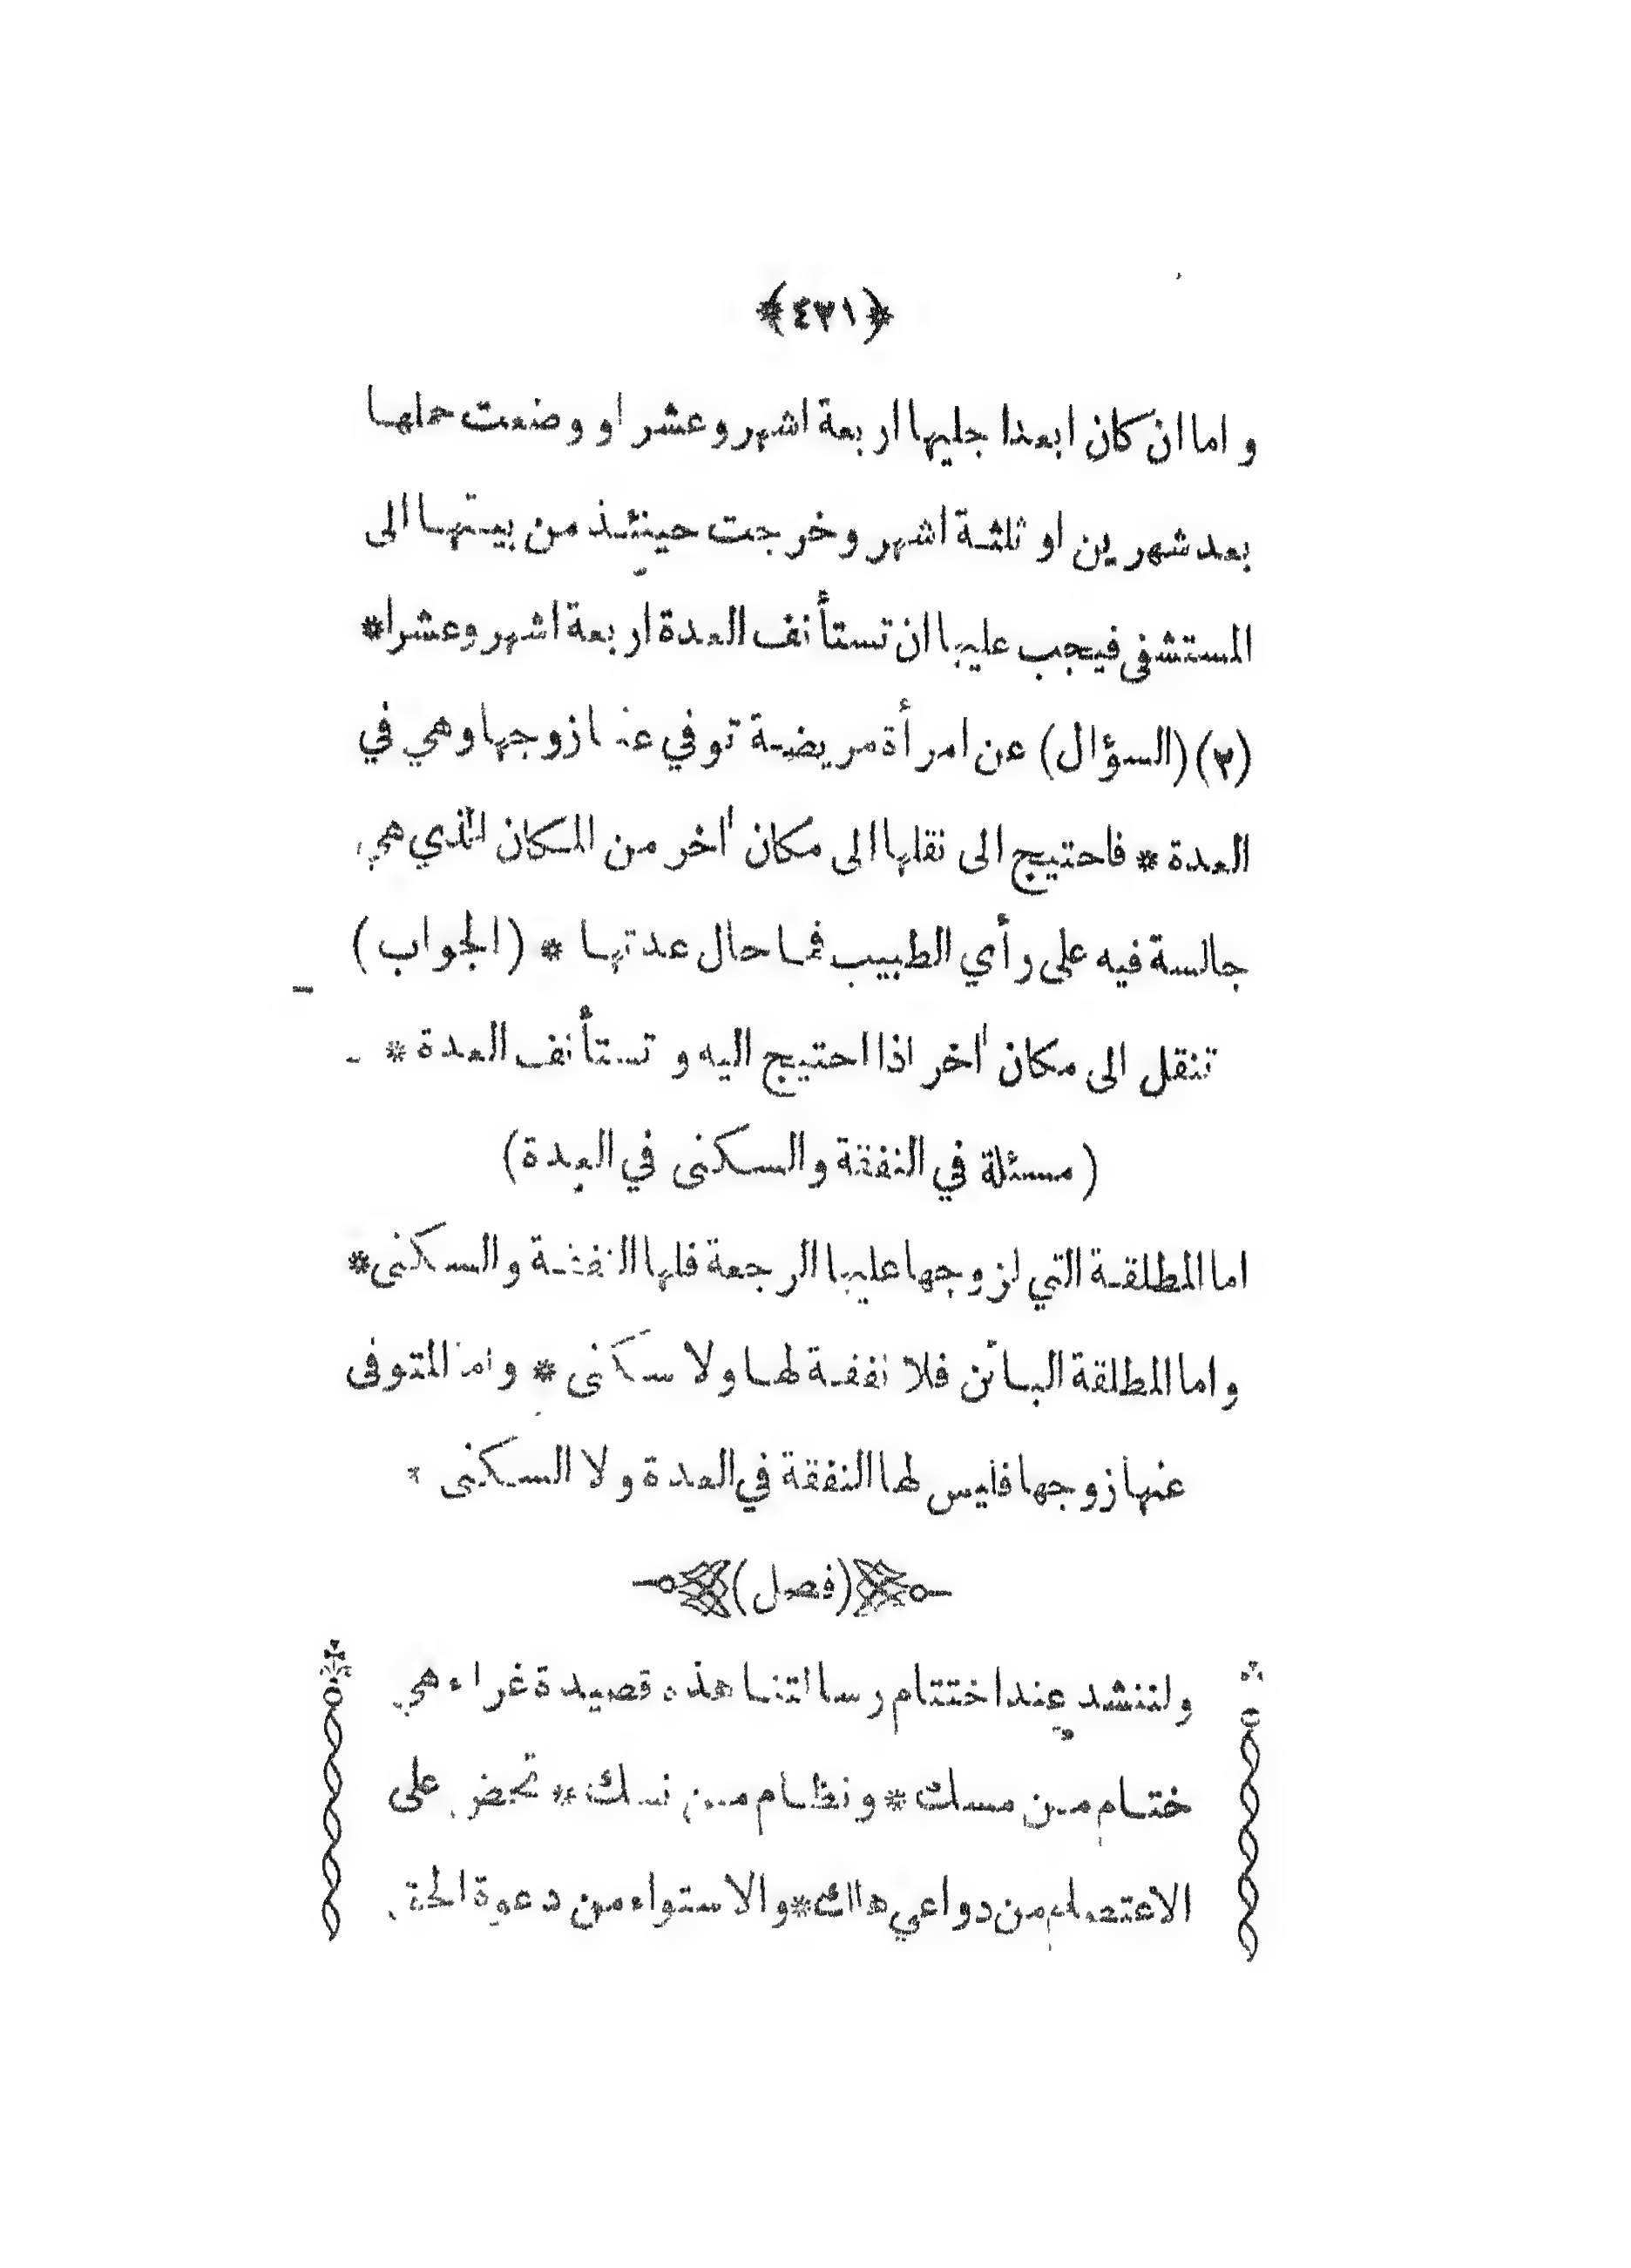 ﴿٤٢١﴾
و اما ان كان ابعد اجليها اربعة اشهر وعشر او وضعت حملها
بعد شهرين او ثلثة اشهر وخرجت حينئذ من بيتها الى
المستشفى فيجب عليها ان تستأنف العدة اربعة اشهر وعشرا*
(٢) (السؤال) عن امرأة مريضة توفي عنها زوجها وهي في
العدة * فاحتيج الى نقلها الى مكان اخر من المكان الذي هي
جالسة فيه على رأي الطبيب فما حال عدتها * (الجواب)
تنقل الى مكان اخر اذا احتيج اليه و تستأنف العدة *
(مسئلة في النفقة والسكنى في العدة)
اما المطلقة التي لزوجها عليها الرجعة فلها النفقة والسكنى*
واما المطلقة البائن فلا نفقة لها ولا سكنى * واما المتوفى
عنها زوجها فليس لها النفقة في العدة ولا السكنى *
(فصل)
ولننشد عند اختتام رسالتنا هذه قصيدة غراء هي
ختام من مسك * ونظام من نسك * تحض على
الاعتصام من دواعي هالك * والاستواء من دعوة